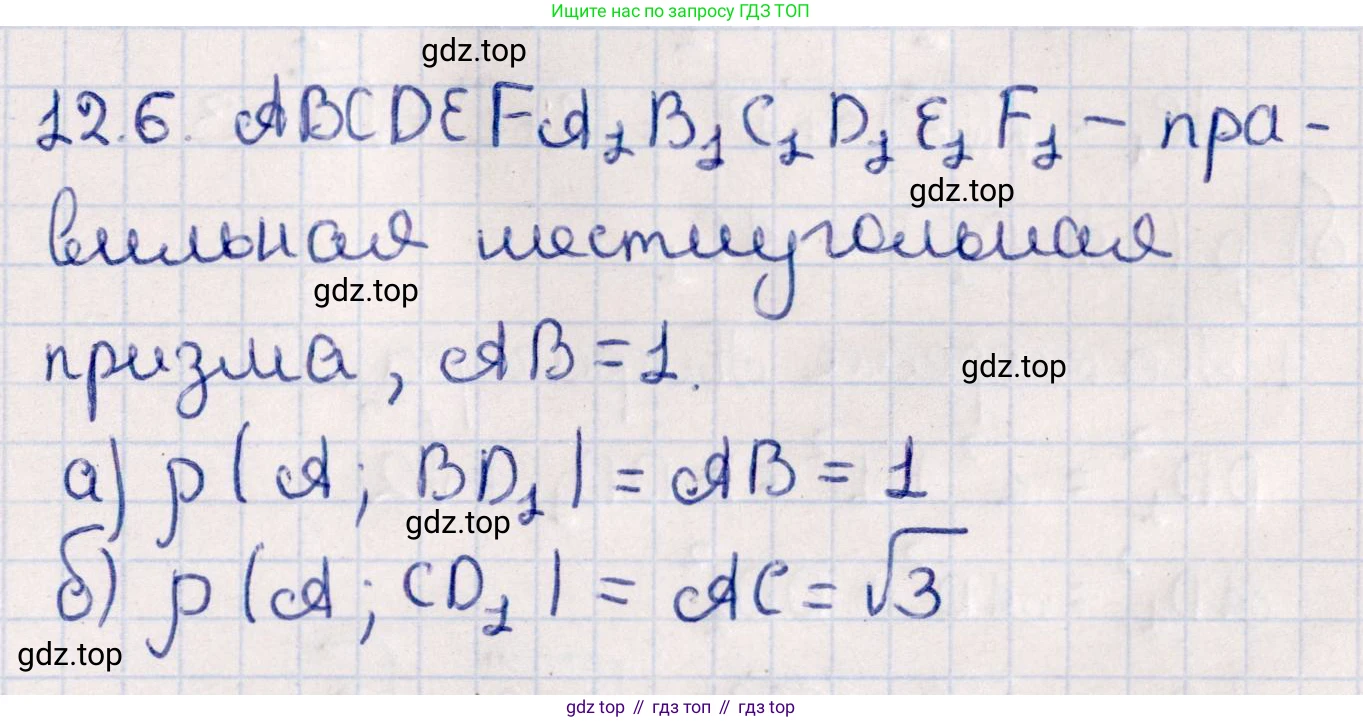 Ищите нас по запросу ГДЗ ТОП
gdz.top
12.6. ABCDEFA₁B₁C₁D₁E₁F₁ – пра-
gdz.top
вильная шестиугольная
gdz.top
призма, AB = 1.
gdz.top
а) ρ(A; BD₁) = AB = 1
gdz.top
б) ρ(A; CD₁) = AC = √3
gdz.top
gdz top // гдз топ // гдз top